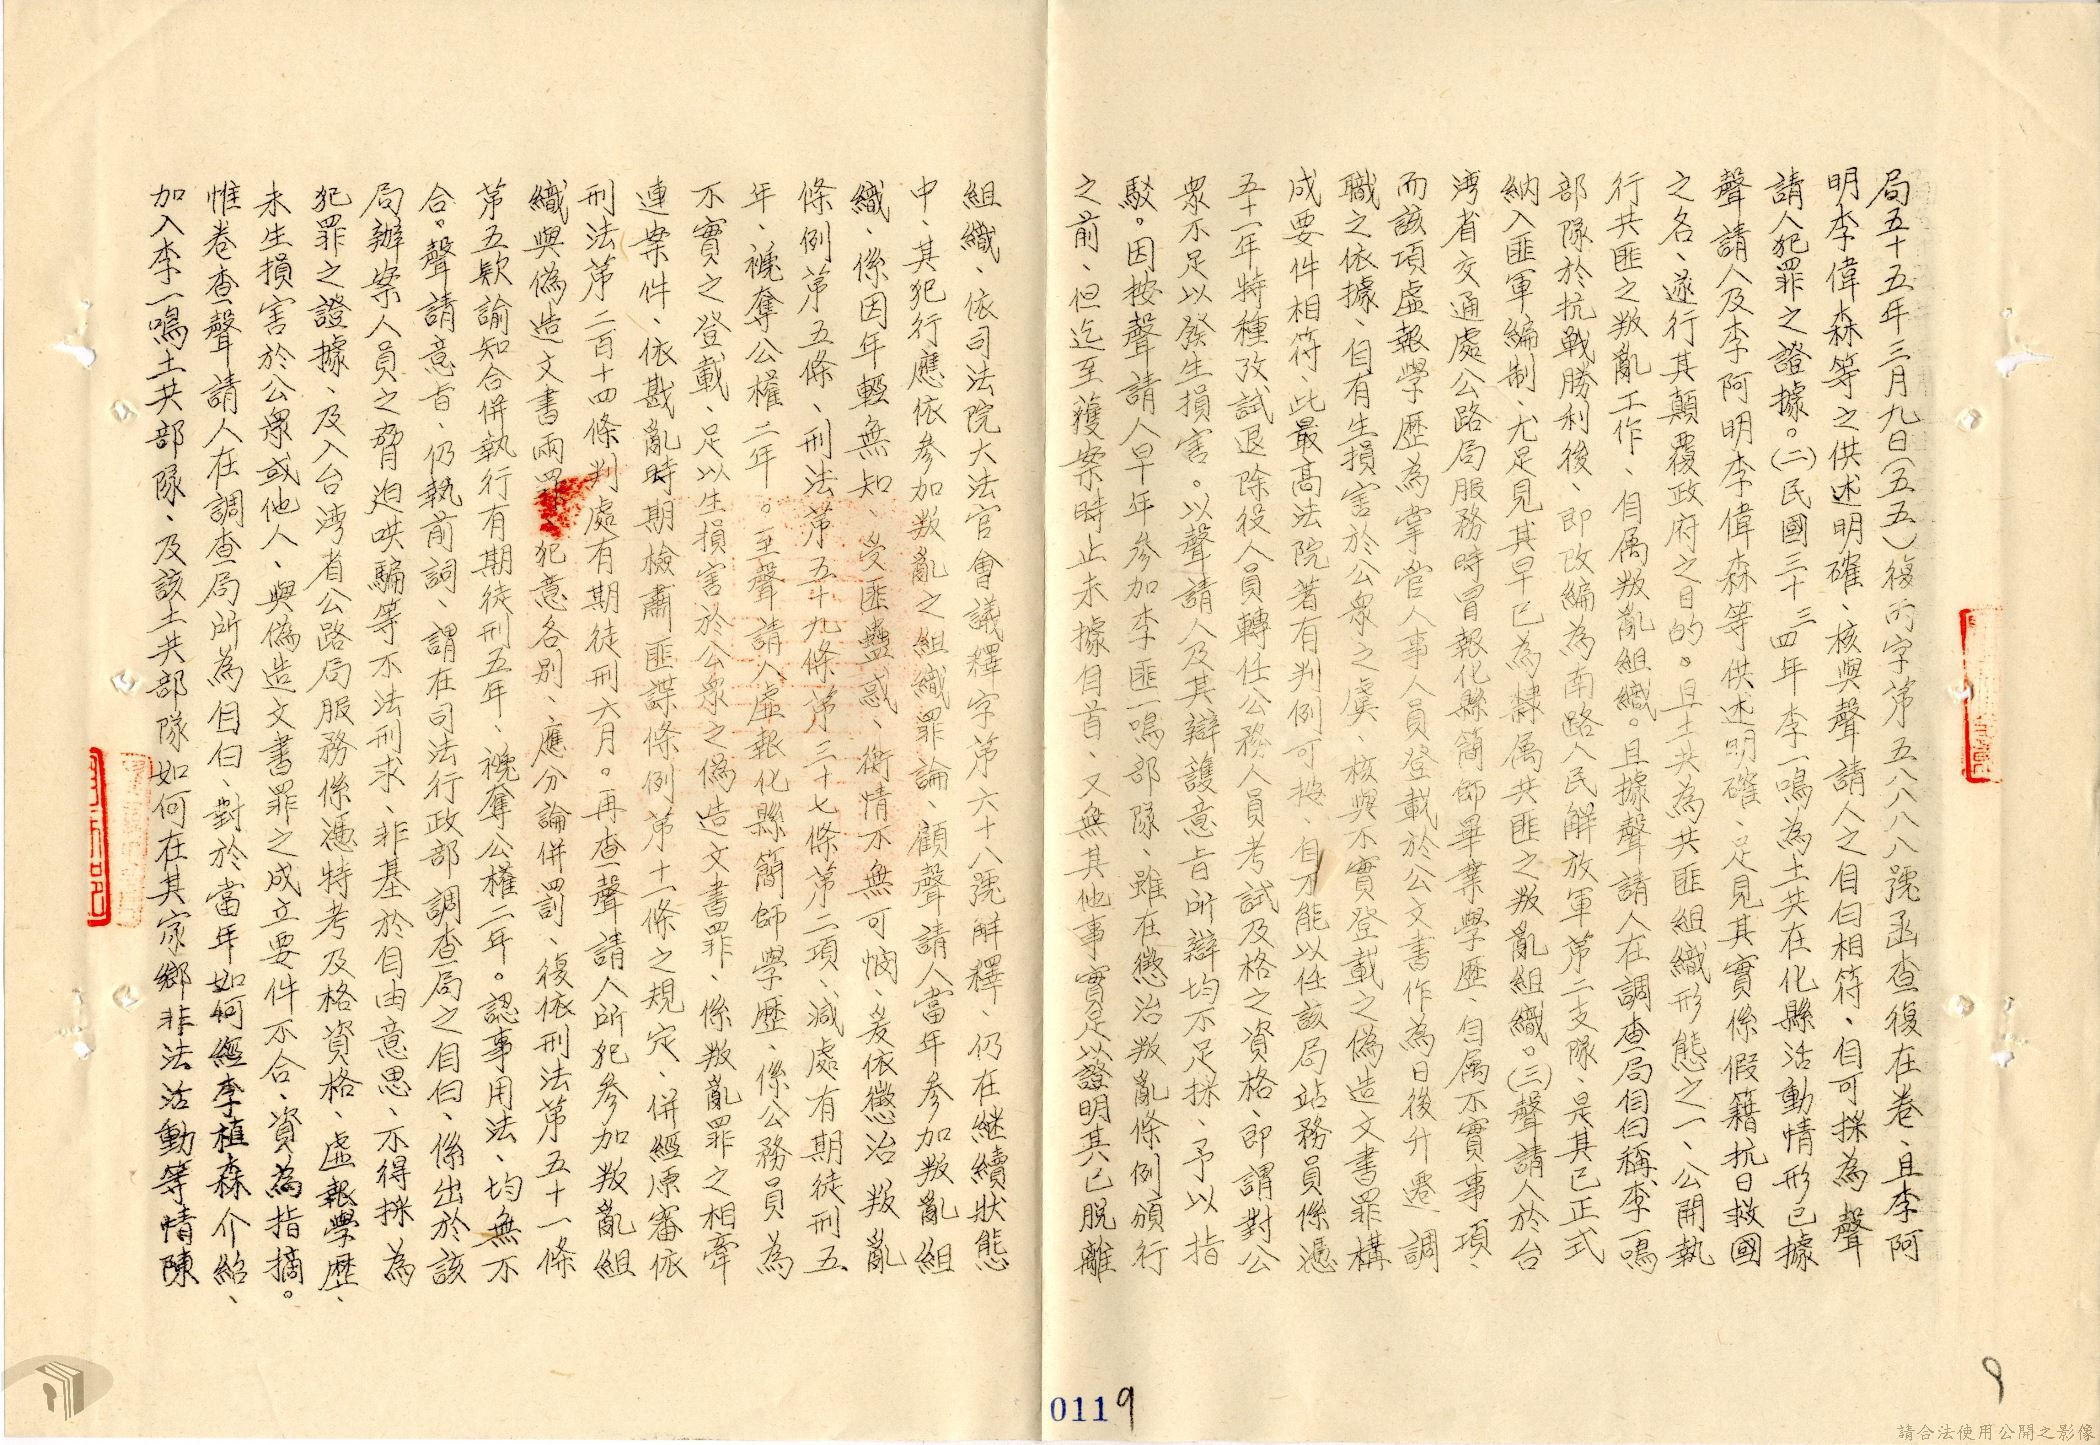 局五十五年三月九日(五五)復丙字第五八八八號函查復在卷、且李阿
明李偉森等之供述明確、核與聲請人之自白相符、自可採為聲
請人犯罪之證據。(二)民國三十三四年李一鳴為土共在化縣活動情形已據
聲請人及李阿明李偉森等供述明確、足見其實係假籍抗日救國
之名、遂行其顛覆政府之目的。且土共為共匪組織形態之一、公開執
行共匪之叛亂工作、自属叛亂組織。且據聲請人在調查局自白稱李一鳴
部隊於抗戰勝利後、即改編為南路人民解放軍第二支隊、是其已正式
納入匪軍編制、尤足見其早已為隸属共匪之叛亂組織。(三)聲請人於台
湾省交通處公路局服務時冒報化縣簡師畢業學歷、自属不實事項、
而該項虛報學歷為掌管人事人員登載於公文書作為日後升遷調
職之依據、自有生損害於公衆之虞、核與不實登載之偽造文書罪構
成要件相符、此最高法院著有判例可按、自不能以任該局站務員係憑
五十一年特種攷試退除役人員轉任公務人員考試及格之資格、即謂對公
衆不足以發生損害。以聲請人及其辯護意旨所辯均不足採、予以指
駁。因按聲請人早年參加李匪一鳴部隊、雖在懲治叛亂條例頒行
之前、但迄至獲案時止未據自首、又無其他事實足以證明其已脫離
組織、依司法院大法官會議釋字第六十八號解釋、仍在継續狀態
中、其犯行應依參加叛亂之組織罪論、顧聲請人當年參加叛亂組
織、係因年輕無知、受匪蠱惑、衡情不無可憫、爰依懲治叛亂
條例第五條、刑法第五十九條第三十七條第二項、減處有期徒刑五
年、褫奪公權二年。至聲請人虛報化縣簡師學歷、係公務員為
不實之登載、足以生損害於公衆之偽造文書罪、係叛亂罪之相牽
連案件、依戡亂時期檢肅匪諜條例第十一條之規定、併經原審依
刑法第二百十四條判處有期徒刑六月。再查聲請人所犯參加叛亂組
織與偽造文書兩罪、犯意各別、應分論併罰、復依刑法第五十一條
第五欵諭知合併執行有期徒刑五年、褫奪公權二年。認事用法、均無不
合。聲請意旨、仍執前詞、謂在司法行政部調查局之自白、係出於該
局辦案人員之脅迫哄騙等不法刑求、非基於自由意思、不得採為
犯罪之證據、及入台湾省公路局服務係憑特考及格資格、虛報學歷、
未生損害於公衆或他人、與偽造文書罪之成立要件不合、資為指摘。
惟卷查聲請人在調查局所為自白、對於當年如何經李植森介紹、
加入李一鳴土共部隊、及該土共部隊如何在其家鄉非法活動等情陳
0119
9
請合法使用公開之影像